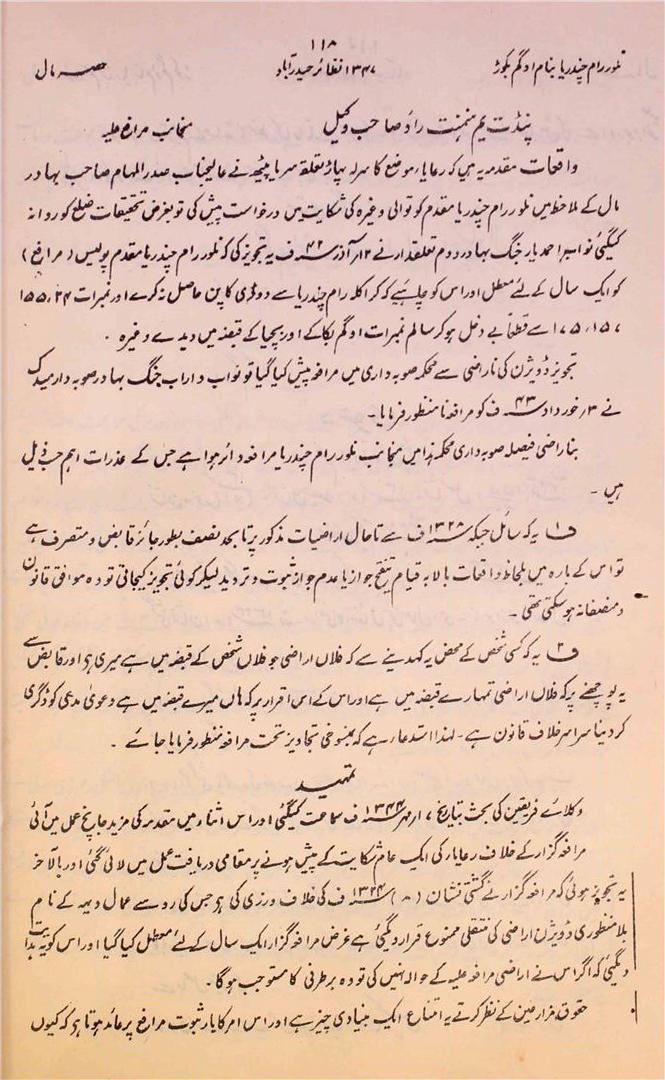 ۱۱۸
نلور رام چندریا بنام اوگم بکوڑ
۱۳۴۷ نظائر حیدرآباد
حصہ مال
پنڈت یم ہنمنت راؤ صاحب وکیل منجانب مرافع علیہ
واقعات مقدمہ یہ ہیں کہ رعایاء موضع کا سرلہ پہاڑ تعلقہ سریا پیٹھ نے عالیجناب صدر المہام صاحب بہادر
مال کے ملاحظہ میں نلور رام چندریا مقدم کوتوالی وغیرہ کی شکایت میں درخواست پیش کی تو بغرض تحقیقات ضلع کو روانہ
کیگئی نواب میر احمد یار جنگ بہادر دوم تعلقدار نے ۱۲ر آذر ۴۲ سنہ ف یہ تجویز کی کہ نلور رام چندریا مقدم پولیس (مرافع)
کو ایک سال کے لئے معطل اور اس کو چاہئیے کہ کرا کلہ رام چندریا سے دو ڈی کا پن حاصل نہ کرے اور نمبرات ۲۴، ۱۵۵
۱۵۷، ۱۷۵ سے قطعاً بے دخل ہو کر سالم نمبرات اوگم بکا کے اور بچیا کے قبضہ میں دیدے وغیرہ۔
تجویز ڈویژن کی ناراضی سے محکمہ صوبہ داری میں مرافعہ پیش کیا گیا تو نواب داراب جنگ بہادر صوبہ دار میدک
نے ۳ر خورداد ۴۳ سنہ ف کو مرافعہ نا منظور فرمایا۔
بناراضی فیصلہ صوبہ داری محکمہ ہذا میں منجانب نلور رام چندریا مرافعہ دائر ہوا ہے جس کے عذرات اہم حسب ذیل
ہیں۔
ف۱ یہ کہ سائل جبکہ ۱۳۲۸ سنہ ف سے تا حال اراضیات مذکور پر تا بحد نصف بطور جائز قابض و متصرف ہے
تو اس کے بارہ میں بلحاظ واقعات بالا بہ قیام تنقیح جواز یا عدم جواز ثبوت و تردید لیکر کوئی تجویز کیجاتی تو وہ موافق قانون
و منصفانہ ہو سکتی تھی۔
ف۲ یہ کہ کسی شخص کے محض یہ کہدینے سے کہ فلاں اراضی جو فلاں شخص کے قبضہ میں ہے میری ہی اور قابض سے
یہ پوچھنے پر کہ فلاں اراضی تمہارے قبضہ میں ہے اور اس کے اس اقرار پر کہ ہاں میرے قبضہ میں ہے دعویٰ مدعی کو ڈگری
کر دینا سراسر خلاف قانون ہے۔ لہذا استدعاء ہے کہ بمنسوخی تجاویز تحت مرافعہ منظور فرمایا جائے۔
تمہید
وکلائے فریقین کی بحث بتاریخ ۷ر مہر ۱۳۴۴ سنہ ف سماعت کیگئی اور اس اثناء میں مقدمہ کی مزید جانچ عمل میں آئی
مرافعہ گزار کے خلاف رعایا کی ایک عام شکایت کے پیش ہونے پر مقامی دریافت عمل میں لائی گئی اور بالآخر
یہ تجویز ہوئی کہ مرافعہ گزار نے گشتی نشان (۸) ۱۳۲۴ سنہ ف کی خلاف ورزی کی ہی جس کی رو سے عمال دیہہ کے نام
بلا منظوری ڈویژن اراضی کی منتقلی ممنوع قرار دیگئی ہے غرض مرافعہ گزار ایک سال کے لئے معطل کیا گیا اور اس کو یہ ہدایت
دیگئی کہ اگر اس نے اراضی مرافعہ علیہ کے حوالہ نہیں کی تو وہ برطرفی کا مستوجب ہوگا۔
حقوق مزارعین کے نظر کرتے یہ امتناع ایک بنیادی چیز ہے اور اس امر کا بار ثبوت مرافع پر عائد ہوتا ہی کہ کیوں